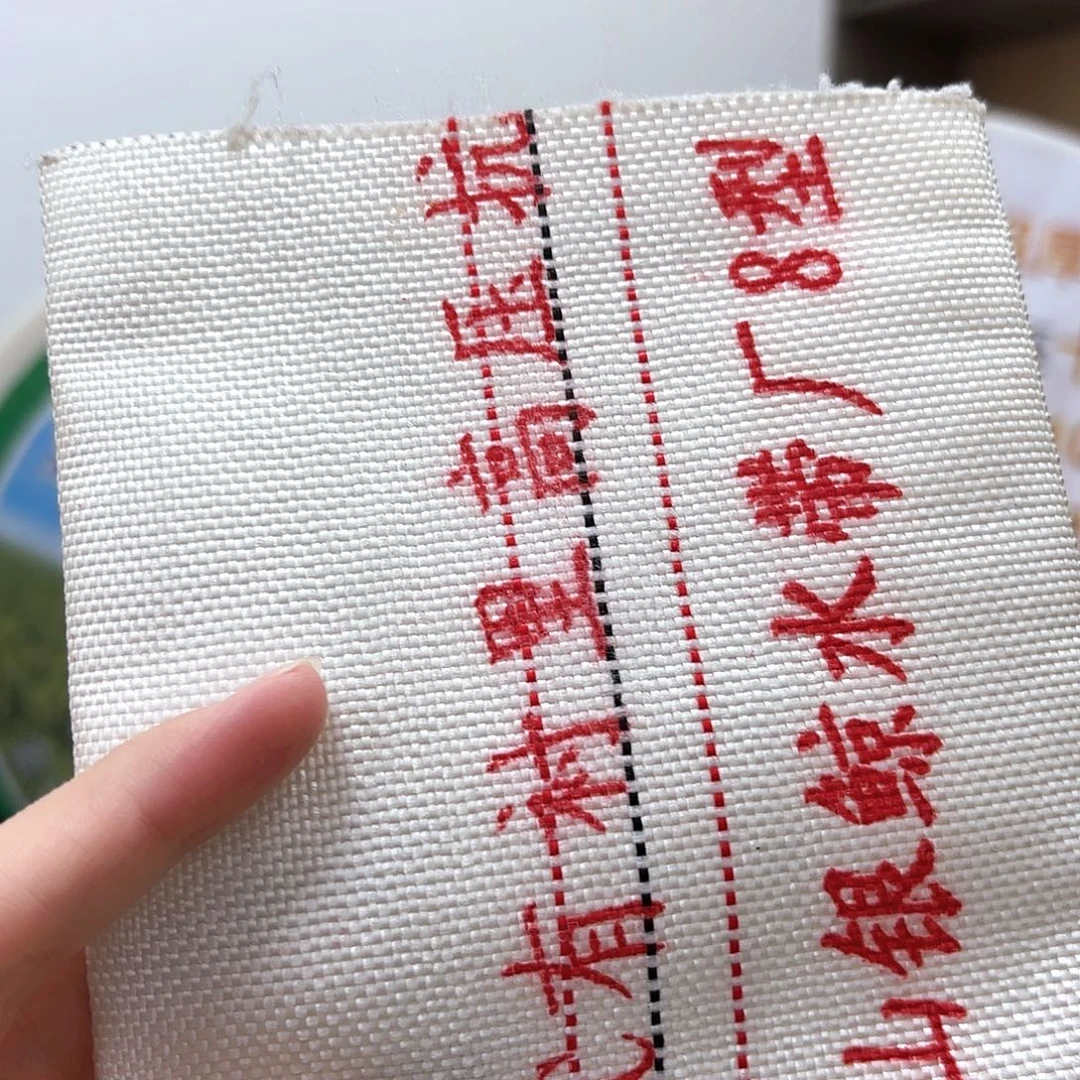 有衬里高压抗
山银鲸水带厂8型